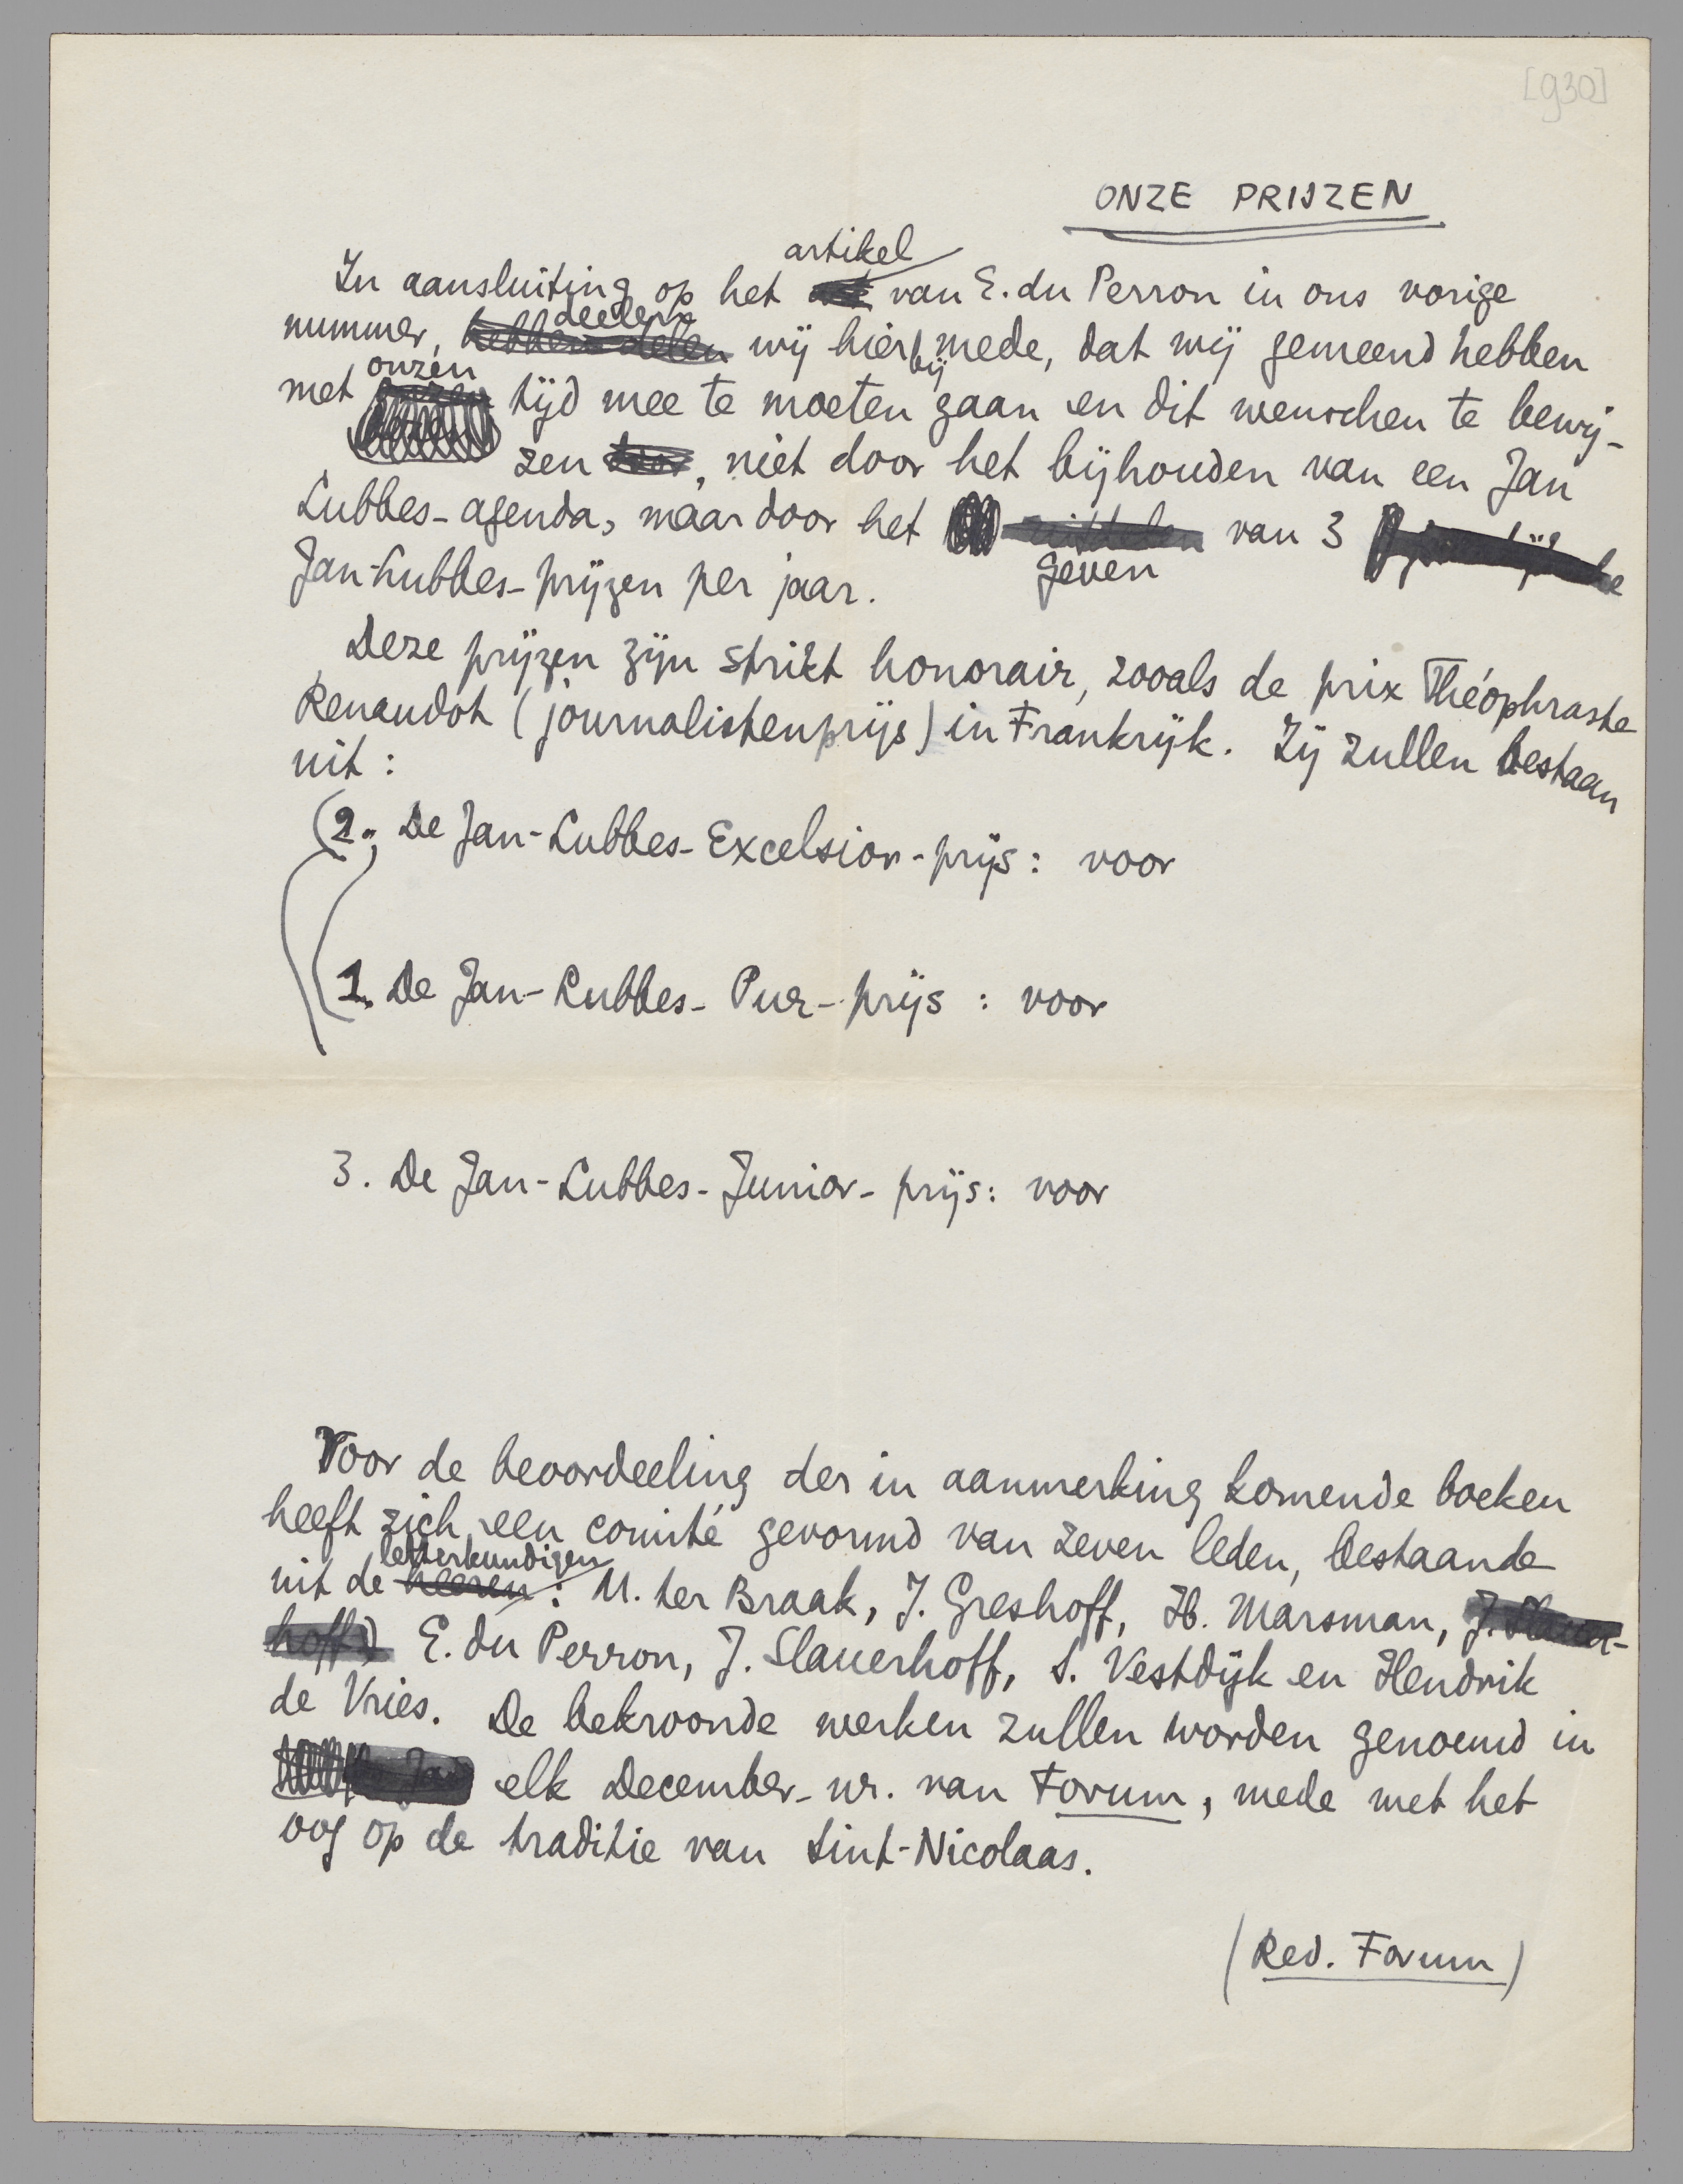 [930]
ONZE PRIJZEN
artikel
In aansluiting op het van E. du Perron in ons vorige
deelen
nummer, hebben delen wij hierbij mede, dat wij gemeend hebben
onzen
met tijd mee te moeten gaan en dit wenschen te bewij-
zen door, niet door het bijhouden van een Jan
Lubbes-agenda, maar door het van 3
geven
Jan-Lubbes-prijzen per jaar.
Deze prijzen zijn strikt honorair, zooals de prix Théophraste
Renaudot (journalistenprijs) in Frankrijk. Zij zullen bestaan
uit:
2. De Jan-Lubbes-Excelsior-prijs: voor
1. De Jan-Lubbes-Pur-prijs: voor
3. De Jan-Lubbes-Junior-prijs: voor
Voor de beoordeeling der in aanmerking komende boeken
heeft zich een comité gevormd van zeven leden, bestaande
letterkundigen
uit de heeren: M. ter Braak, J. Greshoff, H. Marsman, J. Slauer-
hoff) E. du Perron, J. Slauerhoff, S. Vestdijk en Hendrik
de Vries. De bekroonde werken zullen worden genoemd in
elk December-nr. van Forum, mede met het
oog op de traditie van Sint-Nicolaas.
(Red. Forum)